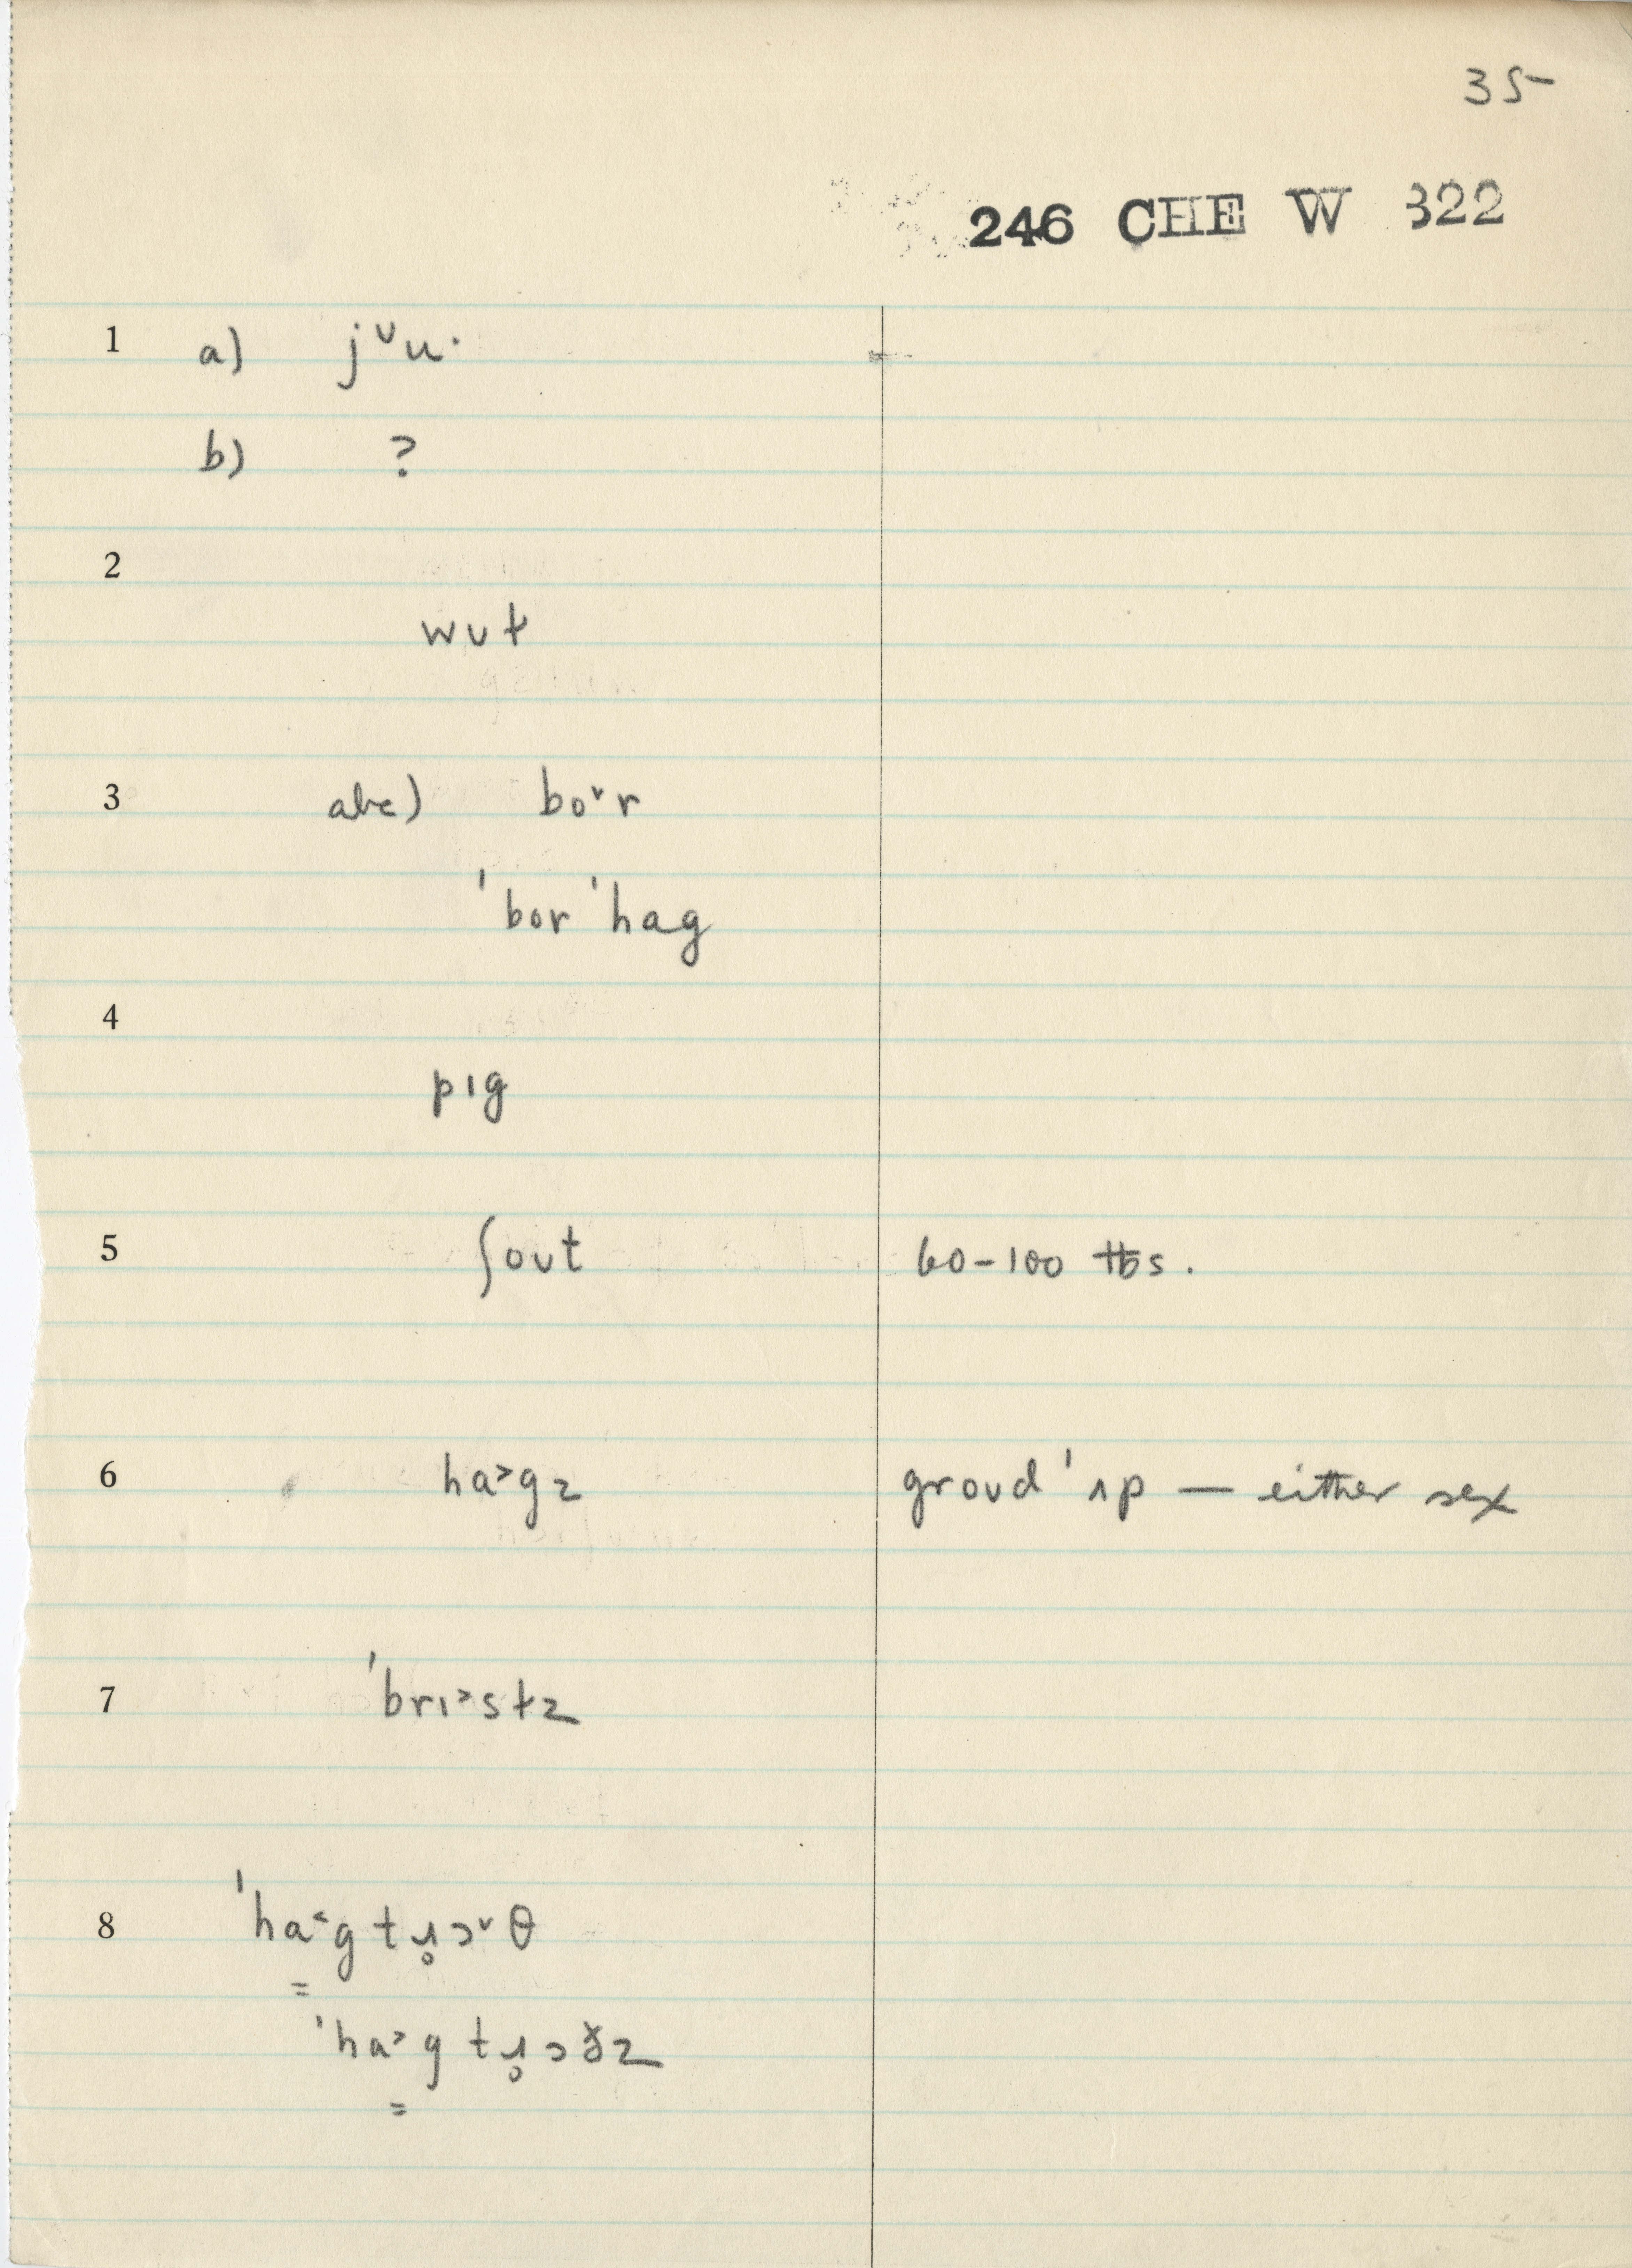 35
246 CHE W 322
1 a) j˅u·
b) ?
2
wʊt
3 abc) bo˅r
ˈborˈhag
4
pɪg
5 ʃoʊt 60-100 lbs.
6 ha˃gz groʊdˈʌp — either sex
7 ˈbrɪ˃stz
8 ˈha˂g tɹ̥ɔ˅θ
=
ˈha˃g tɹ̥ɔðz
=